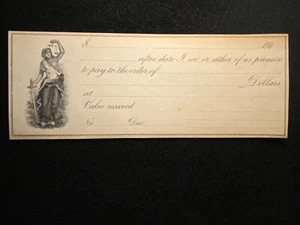 $ 191
after date I, we, or either of us promise
to pay to the order of
Dollars
at
Value received
No. Due